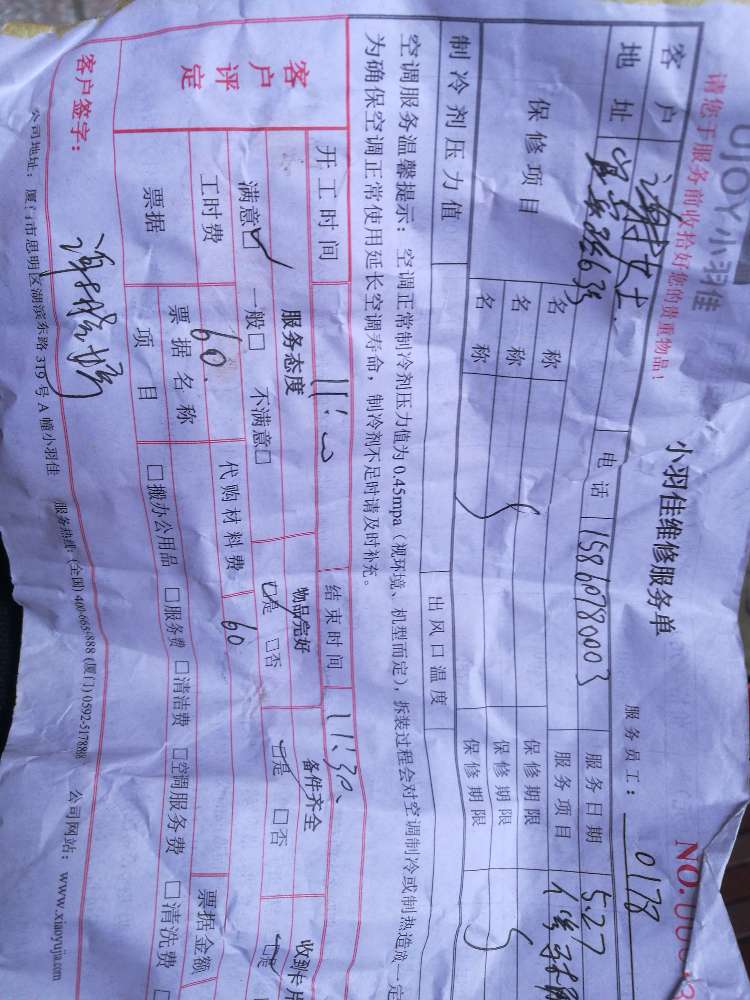 UJOY小羽佳
请您于服务前收拾好您的贵重物品！
小羽佳维修服务单
NO.
服务员工： 0178
客户 谢女士 电话 15860780003 服务日期 5.27
地址 服务项目
保修项目 名称 保修期限
名称 保修期限
名称 保修期限
制冷剂压力值 出风口温度
空调服务温馨提示：空调正常制冷剂压力值为0.45mpa（视环境、机型而定），拆装过程会对空调制冷或制热造成一定
为确保空调正常使用延长空调寿命，制冷剂不足时请及时补充。
开工时间 11:00 结束时间 11:30
客户评定 服务态度 物品完好 备件齐全 收到卡片
满意☑ 一般□ 不满意□ ☑是 □否 ☑是 □否 ☑是
工时费 60. 代购材料费 60
票据 票据名称 票据金额
项目 □搬办公用品 □服务费 □清洁费 □空调服务费 □清洗费
客户签字：
公司地址：厦门市思明区湖滨东路319号A幢小羽佳 服务热线：(全国) 400-6654888 (厦门) 0592-517888 公司网站：www.xiaoyujia.com